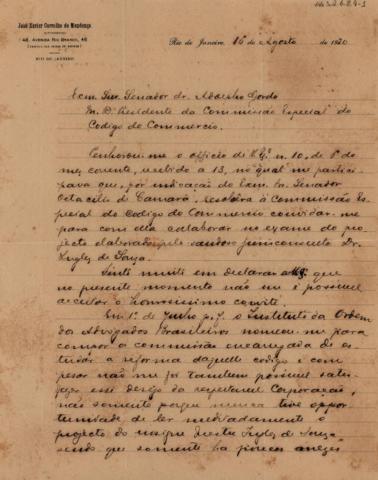 José Xavier Carvalho de Mendonça
46, Avenida Rio Branco, 46
Rio de Janeiro
Rio de Janeiro, 16 de Agosto de 1920
Exm. Snr. Senador dr. Adolpho Gordo
M. D. Presidente da Commissão Especial do
Codigo do Commercio.
Penhorou-me o officio de V. Exª n. 10, de 8 do
mez corrente, recebido a 13, no qual me partici-
pava que, por indicação do Exm. Sr. Senador
Octacilio de Camará, resolvera a Commissão Es-
pecial do Codigo do Commercio convidar-me
para com ella collaborar no exame do pro-
jecto elaborado pelo saudoso jurisconsulto Dr.
Inglez de Souza.
Sinto muito em declarar a V. Exª que
no presente momento não me é possivel
acceitar o honrosissimo convite.
Em 1º de Junho p. p. o Instituto da Ordem
dos Advogados Brasileiros nomeou-me para
compor a commissão encarregada de es-
tudar a reforma daquelle codigo e com
pesar não me foi tambem possivel satis-
fazer esse desejo da respeitavel Corporação,
não somente porque nunca tive oppor-
tunidade de ler meditadamente o
projecto do insigne mestre Inglez de Souza
sendo que somente ha poucos